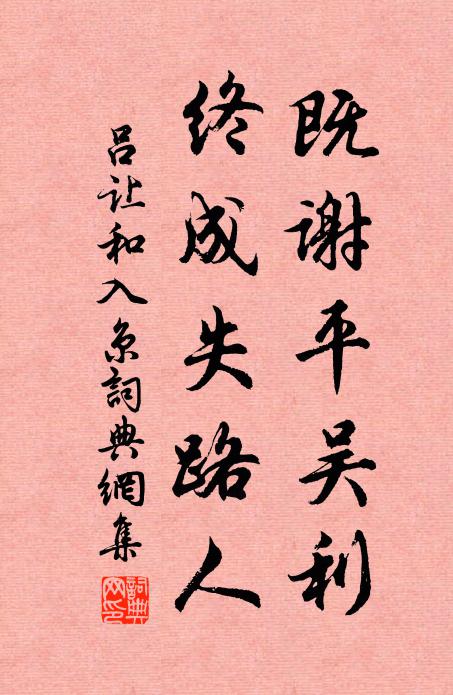 既谢平吴利
终成失路人
吕让和入京詞典網集
詞典網印